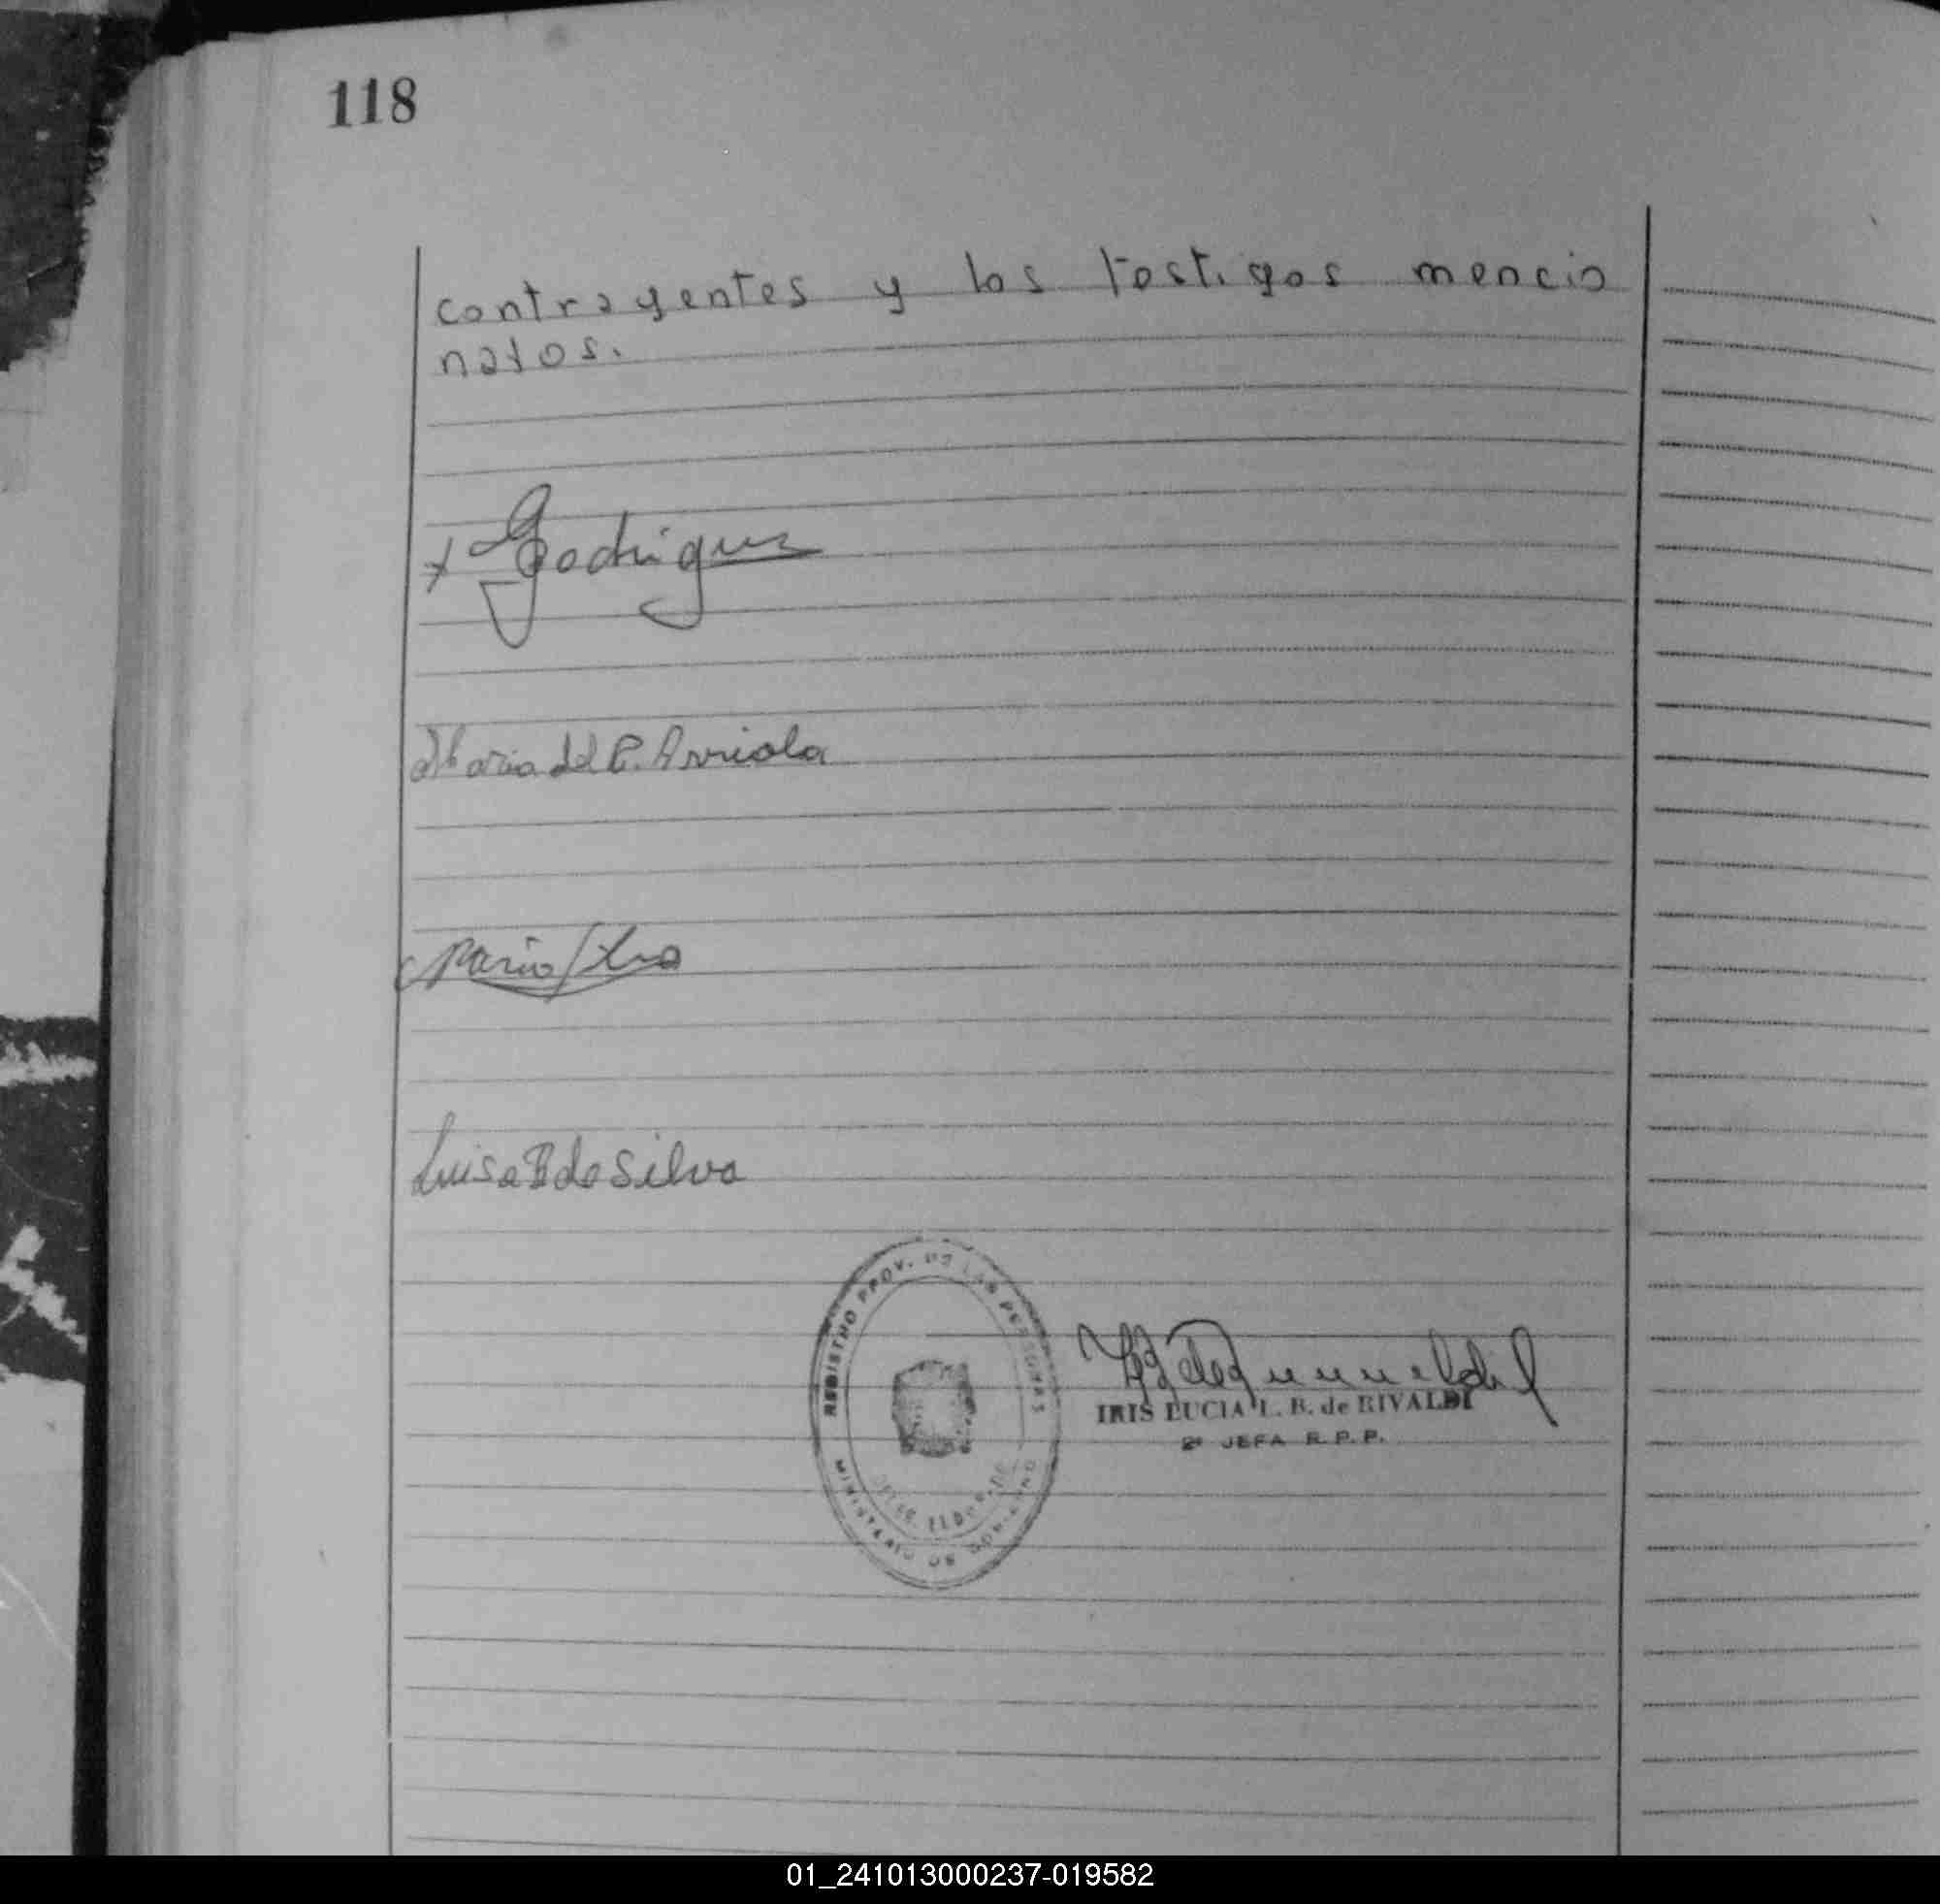 118
contrayentes y los testigos mencio
nados.
Rodriguez
Maria del C. Arriola
Mario Silva
Luisa B de Silva
REGISTRO PROV. DE LAS PERSONAS
MINISTERIO DE GOBIERNO
IRIS LUCIA L. B. de RIVALDI
2ª JEFA R. P. P.
01_241013000237-019582